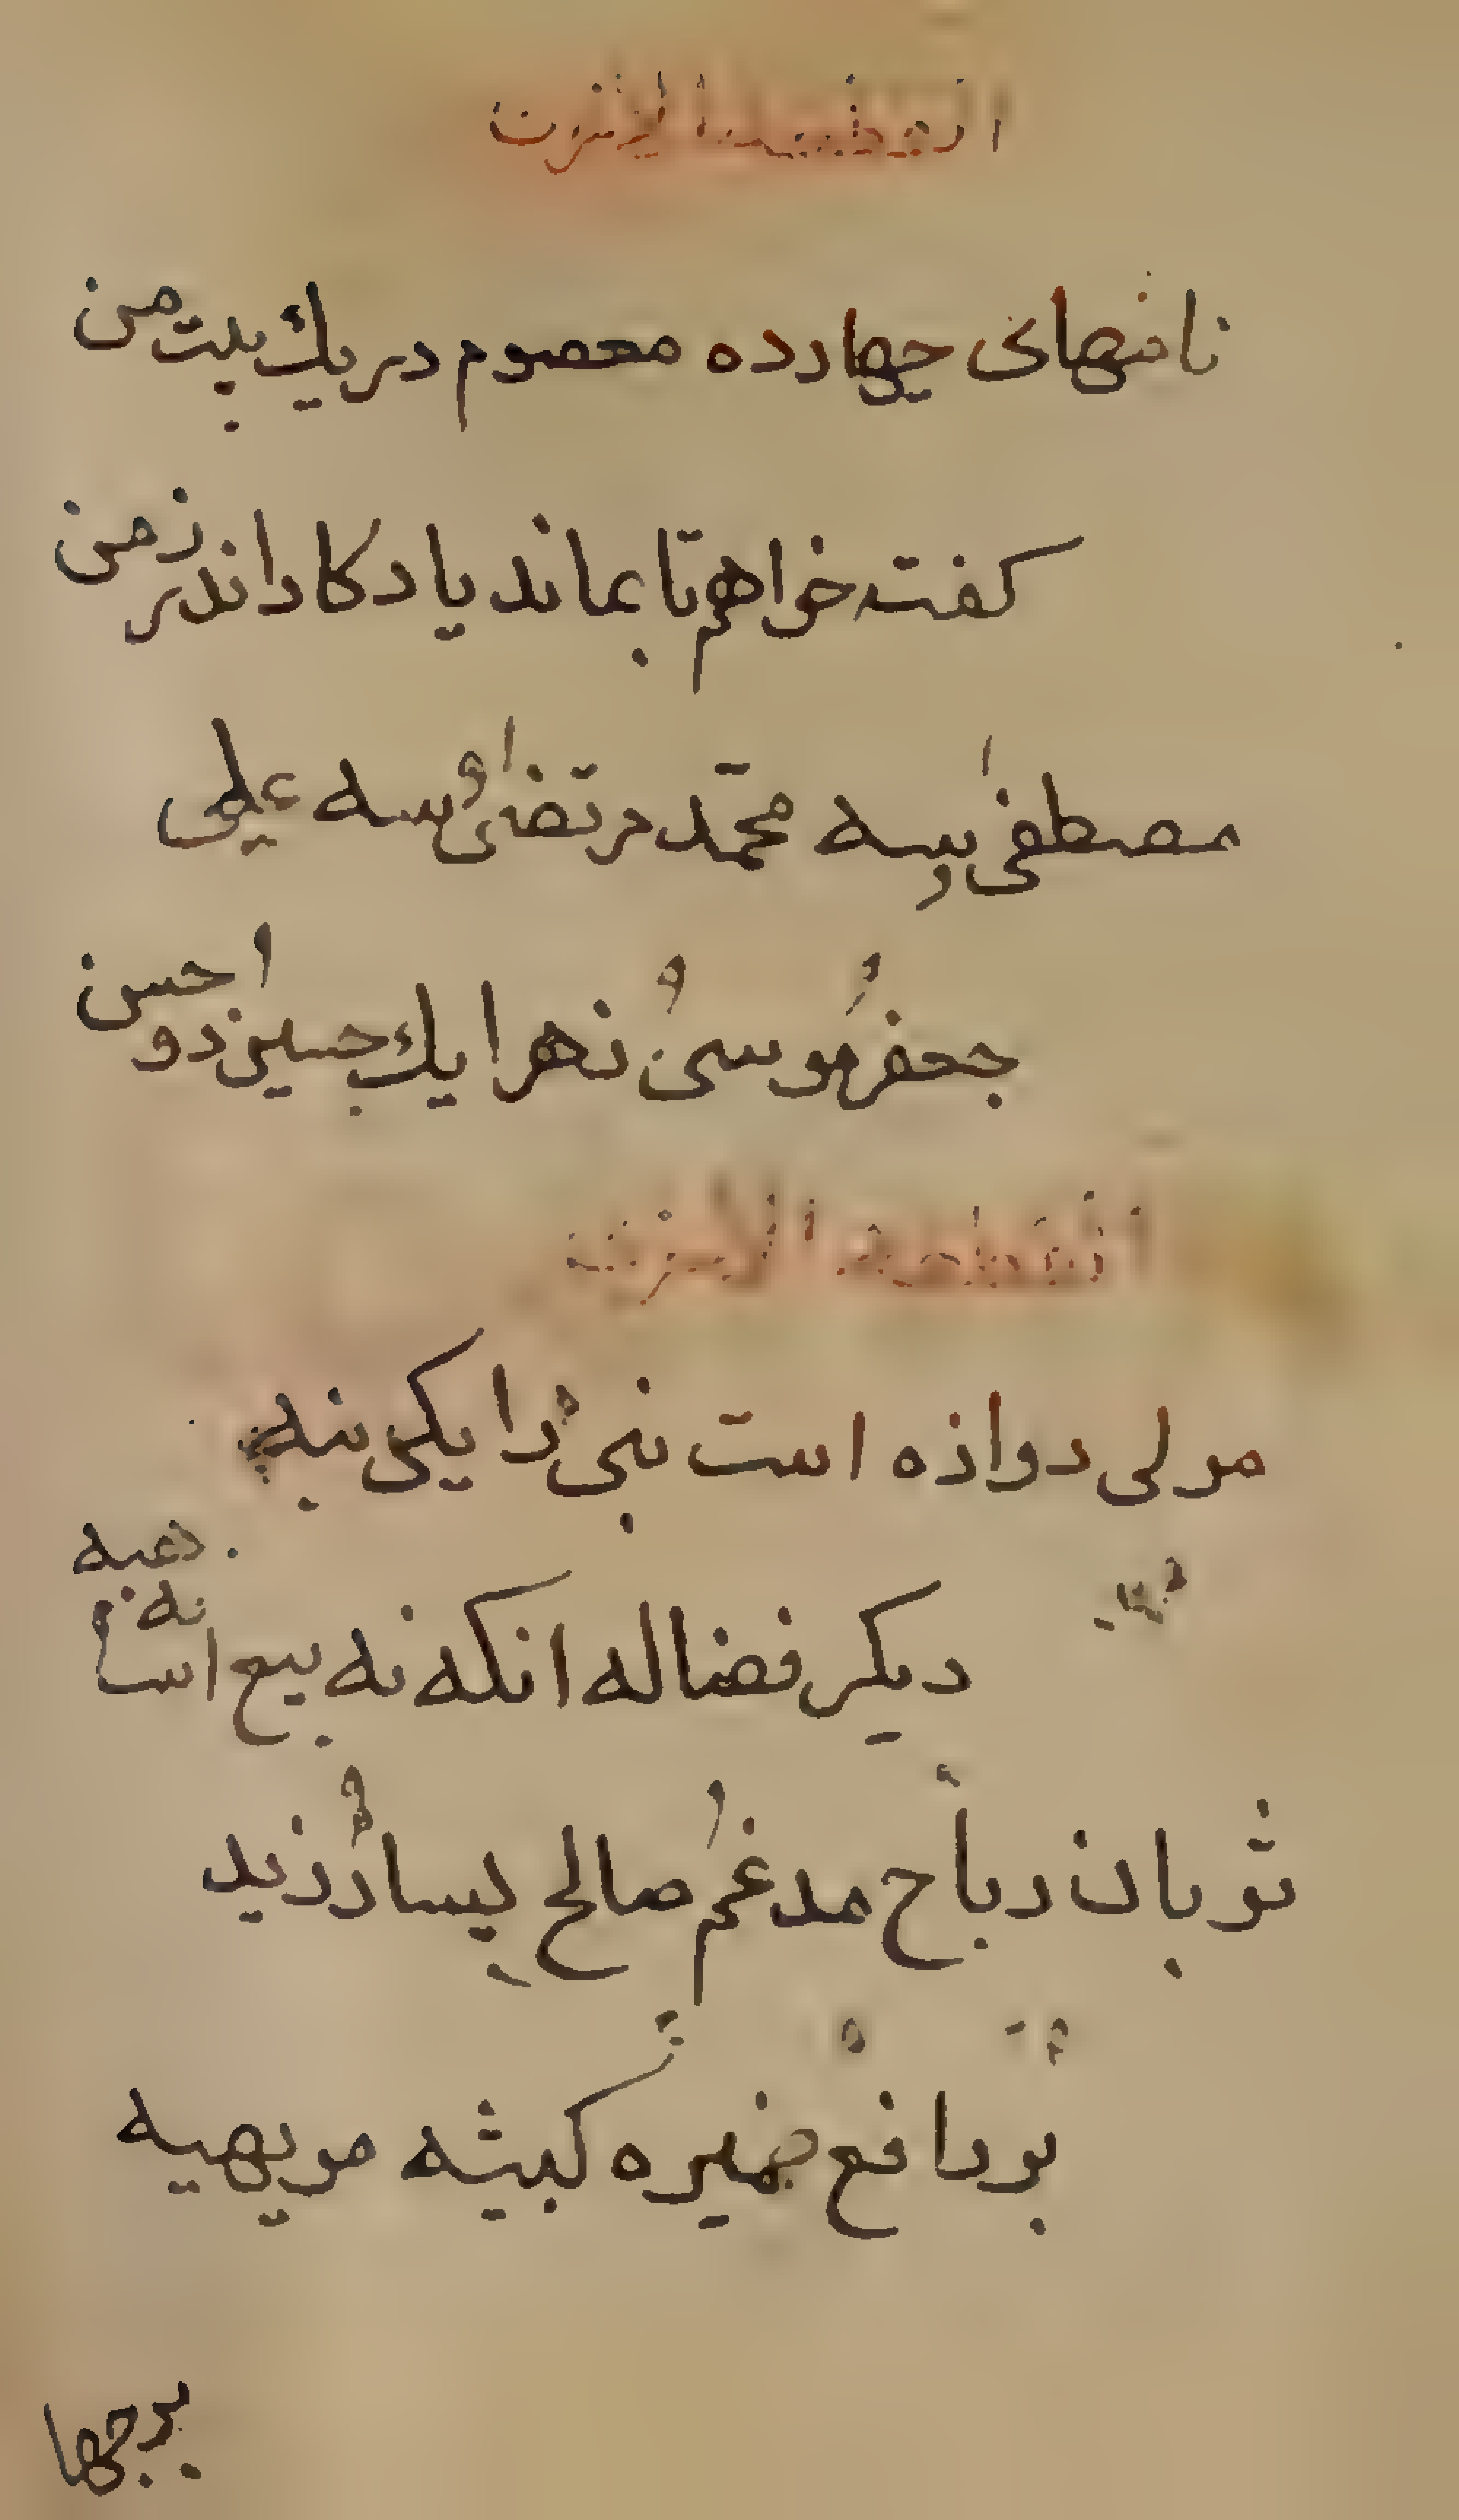 نامهای چهارده معصوم در یك بیت من
کفت خواهم تا بماند یادکار اندر زمن
مصطفی وسه محمّد مرتضی وسه علی
جعفر وموسی وزهرا یك حسین ودو حسن
القطعة الاخری
مولی دوازده است نبی را یکی نبیه
دیکر فضاله انکه نه بیع است نه هبه
ثوبان رباح مدغم وصالح یسار وزید
بورافع ضمیره کبشه مویهبه
برجها